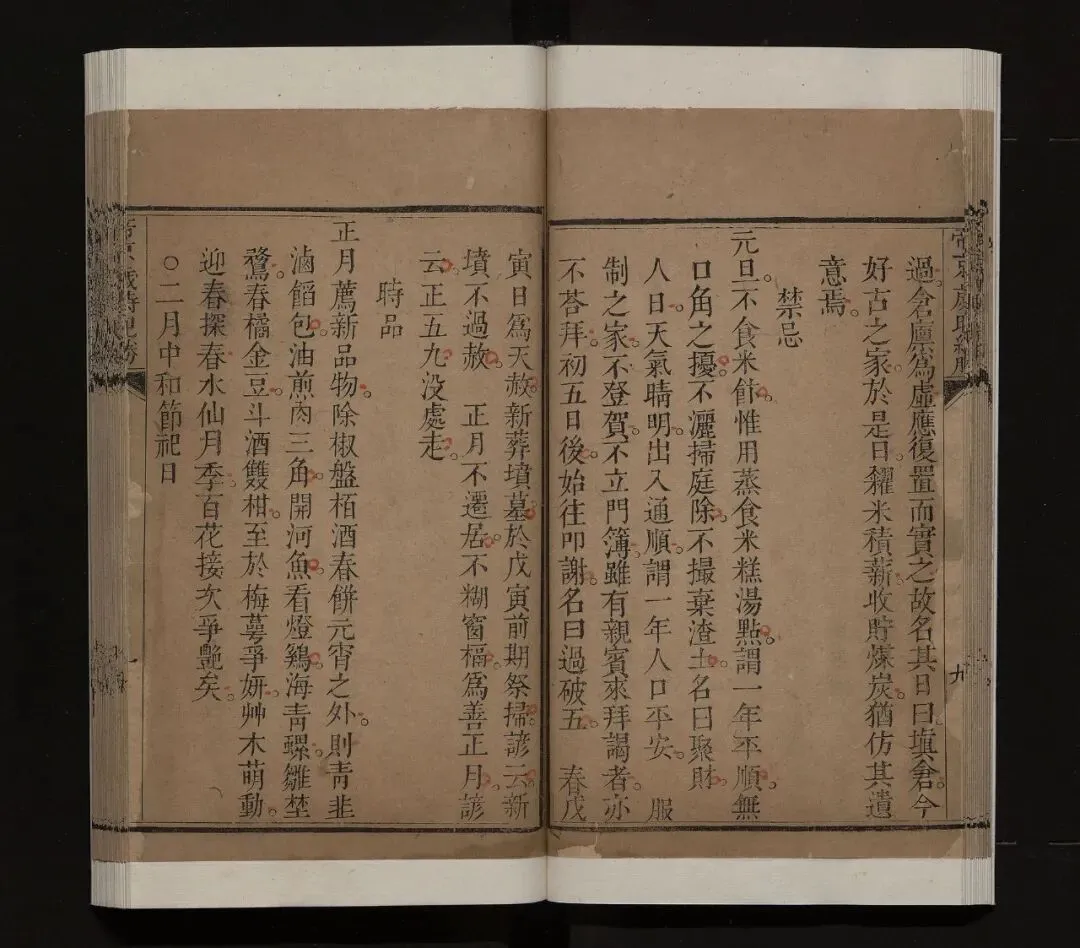 過。倉廪為虛應復置而實之故名其日曰塡倉。今
好古之家於是日糴米積薪。收貯煤炭。猶仿其遺
意焉。
禁忌
元旦。不食米飰。惟用蒸食米糕湯點。謂一年平順。無
口角之擾。不灑掃庭除。不撮棄渣土。名曰聚財。
人日。天氣晴明。出入通順。謂一年人口平安。 服
制之家。不登賀。不立門簿。雖有親賓來拜謁者。亦
不荅拜。初五日後。始往叩謝。名曰過破五。 春戊
寅日爲天赦。新葬墳墓。於戊寅前期祭掃。諺云。新
墳不過赦。 正月不遷居。不糊窗槅。爲善正月。諺
云。正五九沒處走。
時品
正月薦新品物。除椒盤栢酒春餅元宵之外。則靑韭
滷餡包。油煎肉三角。開河魚。看燈鷄。海靑螺。雛㙒
鶩。春橘金豆。斗酒雙柑。至於梅萼爭姸。艸木萌動。
迎春探春。水仙月季。百花接次爭艶矣。
○二月中和節祀日
九